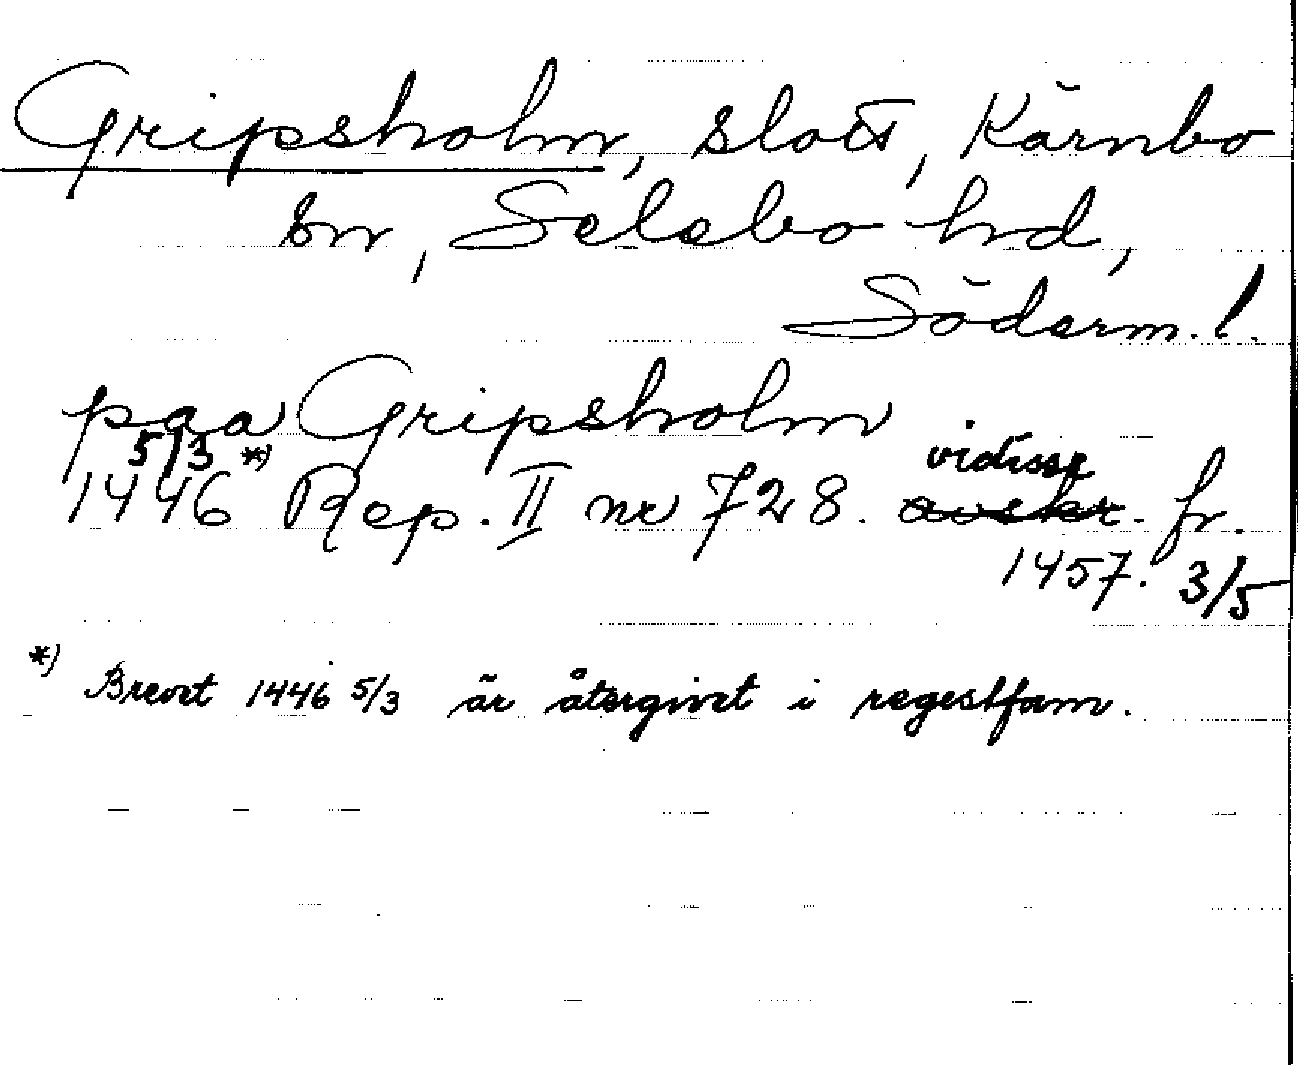 Gripsholm, slott, Kärnbo
sn, Selebo hrd,
Söderm. l.
paa Gripsholm
5/3 *) vidisse
1446 Rep. II nr 728. avskr. fr.
1457. 3/5
*) Brevet 1446 5/3 är återgivet i regestform.